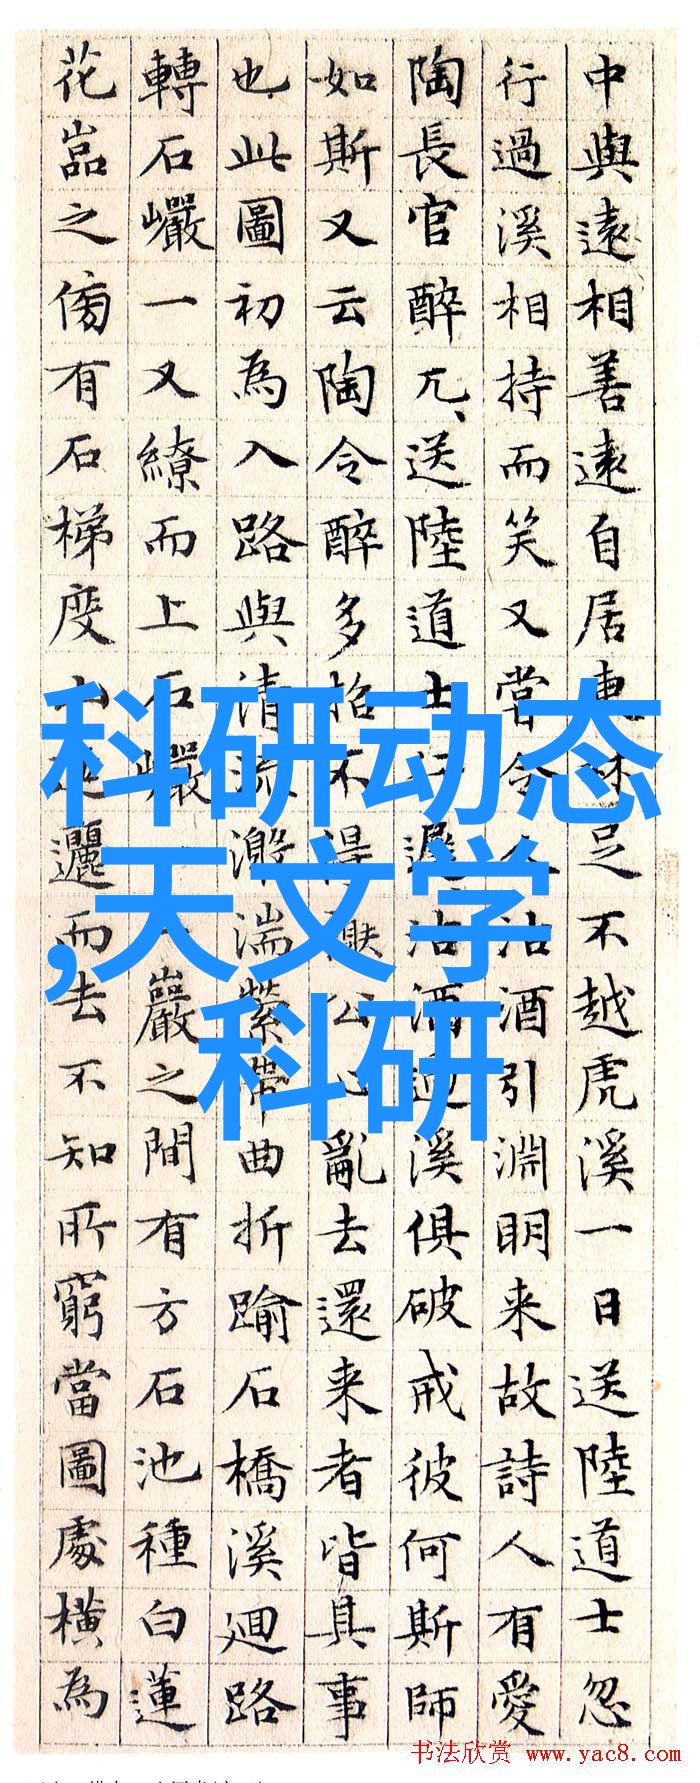 中與遠相善遠自居東林足不越虎溪一日送陸道士忽
行過溪相持而笑又嘗令人沽酒引淵明来故詩人有愛
陶長官醉兀、送陸道士行遲沽酒過溪俱破戒彼何斯師
如斯又云陶令醉多招不得公心亂去還来者皆具事
也此圖初為入路與清流激湍縈帶曲折踰石橋溪迴路
轉石巖一又繚而上石巖巖之間有方石池種白蓮
花嵓之傍有石梯度山迤邐而去不知所窮當圖處横為
科研动态
,天文学
科研
书法欣赏 www.yac8.com